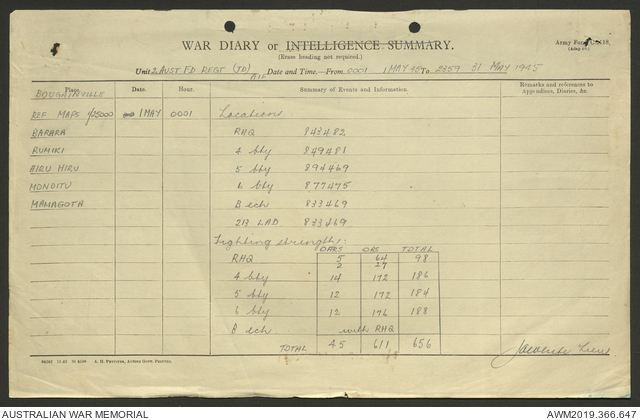 WAR DIARY or INTELLIGENCE SUMMARY.
(Erase heading not required.)
Army Form
Unit 2 AUST FD REGT (TD) AIF Date and Time.—From 0001 1 MAY 45 To 2359 31 MAY 1945
Place. Date. Hour. Summary of Events and Information. Remarks and references to Appendices, Diaries, &c.
BOUGAINVILLE
REF MAPS 1/25000 1 MAY 0001 Locations
BARARA RHQ 843482
RUMIKI 4 bty 849481
AIRU HIRU 5 bty 894469
MONOITU 6 bty 877475
MAMAGOTA B ech 833469
213 LAD 833469
Fighting strength:
OFFRS ORS TOTAL
RHQ 5 64 98
2 27
4 bty 14 172 186
5 bty 12 172 184
6 bty 12 176 188
B ech with RHQ
TOTAL 45 611 656
Lieut
AUSTRALIAN WAR MEMORIAL AWM2019.366.647